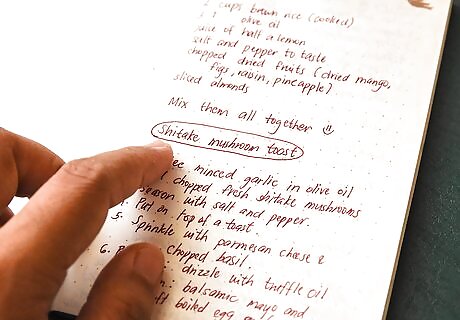 2 cups brown rice (cooked)
olive oil
juice of half a lemon
salt and pepper to taste
chopped dried fruits (dried mango,
figs, raisin, pineapple)
sliced almonds
Mix them all together
Shitake mushroom toast
minced garlic in olive oil
chopped fresh shitake mushrooms
season with salt and pepper.
4. Put on top of a toast.
5. Sprinkle with parmesan cheese &
chopped basil.
6. drizzle with truffle oil
: balsamic mayo and
soft boiled egg